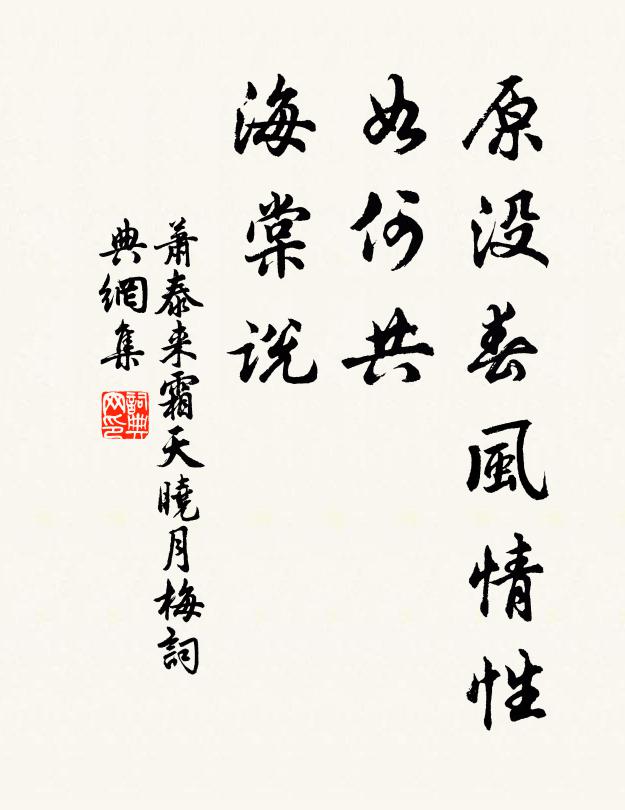 原没春風情性
如何共
海棠说
萧泰来霜天曉月梅詞
典網集
詞典
网印